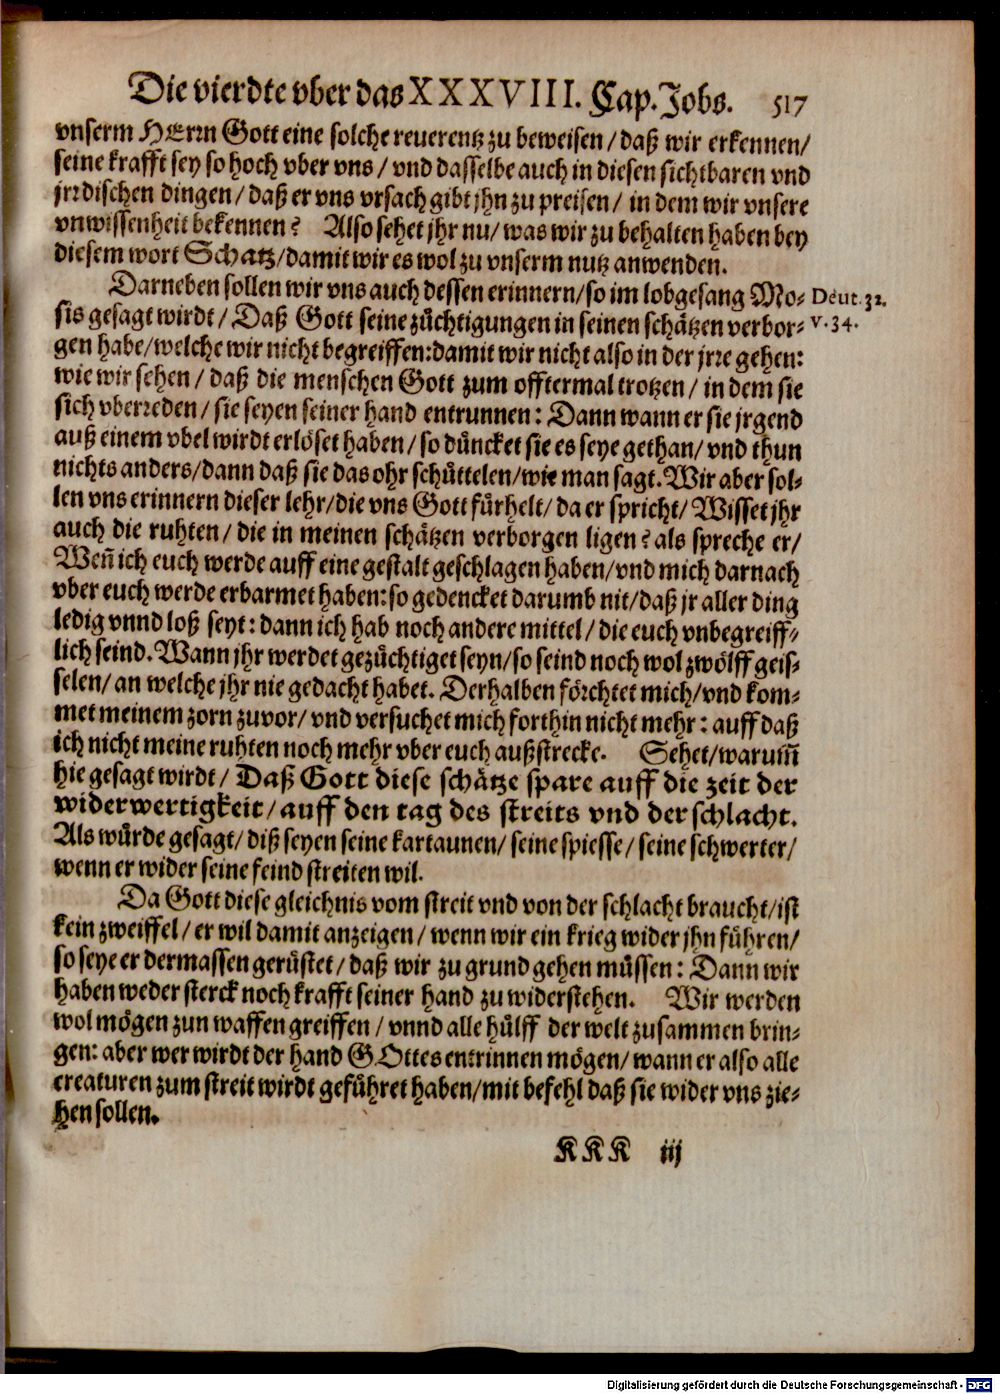 Die vierdte vber das XXXVIII. Cap. Jobs. 517
vnserm HErrn Gott eine solche reuerentz zu beweisen / daß wir erkennen /
seine krafft sey so hoch vber vns / vnd dasselbe auch in diesen sichtbaren vnd
jrrdischen dingen / daß er vns vrsach gibt jhn zu preisen / in dem wir vnsere
vnwissenheit bekennen? Also sehet jhr nu / was wir zu behalten haben bey
diesem wort Schatz / damit wir es wol zu vnserm nutz anwenden.
Darneben sollen wir vns auch dessen erinnern / so im lobgesang Mo-
Deut. 32.
sis gesagt wirdt / Daß Gott seine züchtigungen in seinen schätzen verbor-
v. 34.
gen habe / welche wir nicht begreiffen: damit wir nicht also in der jrre gehen:
wie wir sehen / daß die menschen Gott zum offtermal trotzen / in dem sie
sich vberreden / sie seyen seiner hand entrunnen: Dann wann er sie jrgend
auß einem vbel wirdt erlöset haben / so düncket sie es seye gethan / vnd thun
nichts anders / dann daß sie das ohr schüttelen / wie man sagt. Wir aber sol-
len vns erinnern dieser lehr / die vns Gott fürhelt / da er spricht / Wisset jhr
auch die ruhten / die in meinen schätzen verborgen ligen? als spreche er /
Weñ ich euch werde auff eine gestalt geschlagen haben / vnd mich darnach
vber euch werde erbarmet haben: so gedencket darumb nit / daß jr aller ding
ledig vnnd loß seyt: dann ich hab noch andere mittel / die euch vnbegreiff-
lich seind. Wann jhr werdet gezüchtiget seyn / so seind noch wol zwölff geis-
selen / an welche jhr nie gedacht habet. Derhalben förchtet mich / vnd kom-
met meinem zorn zuvor / vnd versuchet mich forthin nicht mehr: auff daß
ich nicht meine ruhten noch mehr vber euch außstrecke. Sehet / warum̃
hie gesagt wirdt / Daß Gott diese schätze spare auff die zeit der
widerwertigkeit / auff den tag des streits vnd der schlacht.
Als würde gesagt / diß seyen seine kartaunen / seine spiesse / seine schwerter /
wenn er wider seine feind streiten wil.
Da Gott diese gleichnis vom streit vnd von der schlacht braucht / ist
kein zweiffel / er wil damit anzeigen / wenn wir ein krieg wider jhn führen /
so seye er dermassen gerüstet / daß wir zu grund gehen müssen: Dann wir
haben weder sterck noch krafft seiner hand zu widerstehen. Wir werden
wol mögen zun waffen greiffen / vnnd alle hülff der welt zusammen brin-
gen: aber wer wirdt der hand GOttes entrinnen mögen / wann er also alle
creaturen zum streit wirdt geführet haben / mit befehl daß sie wider vns zie-
hen sollen.
KKK iij
Digitalisierung gefördert durch die Deutsche Forschungsgemeinschaft - DFG